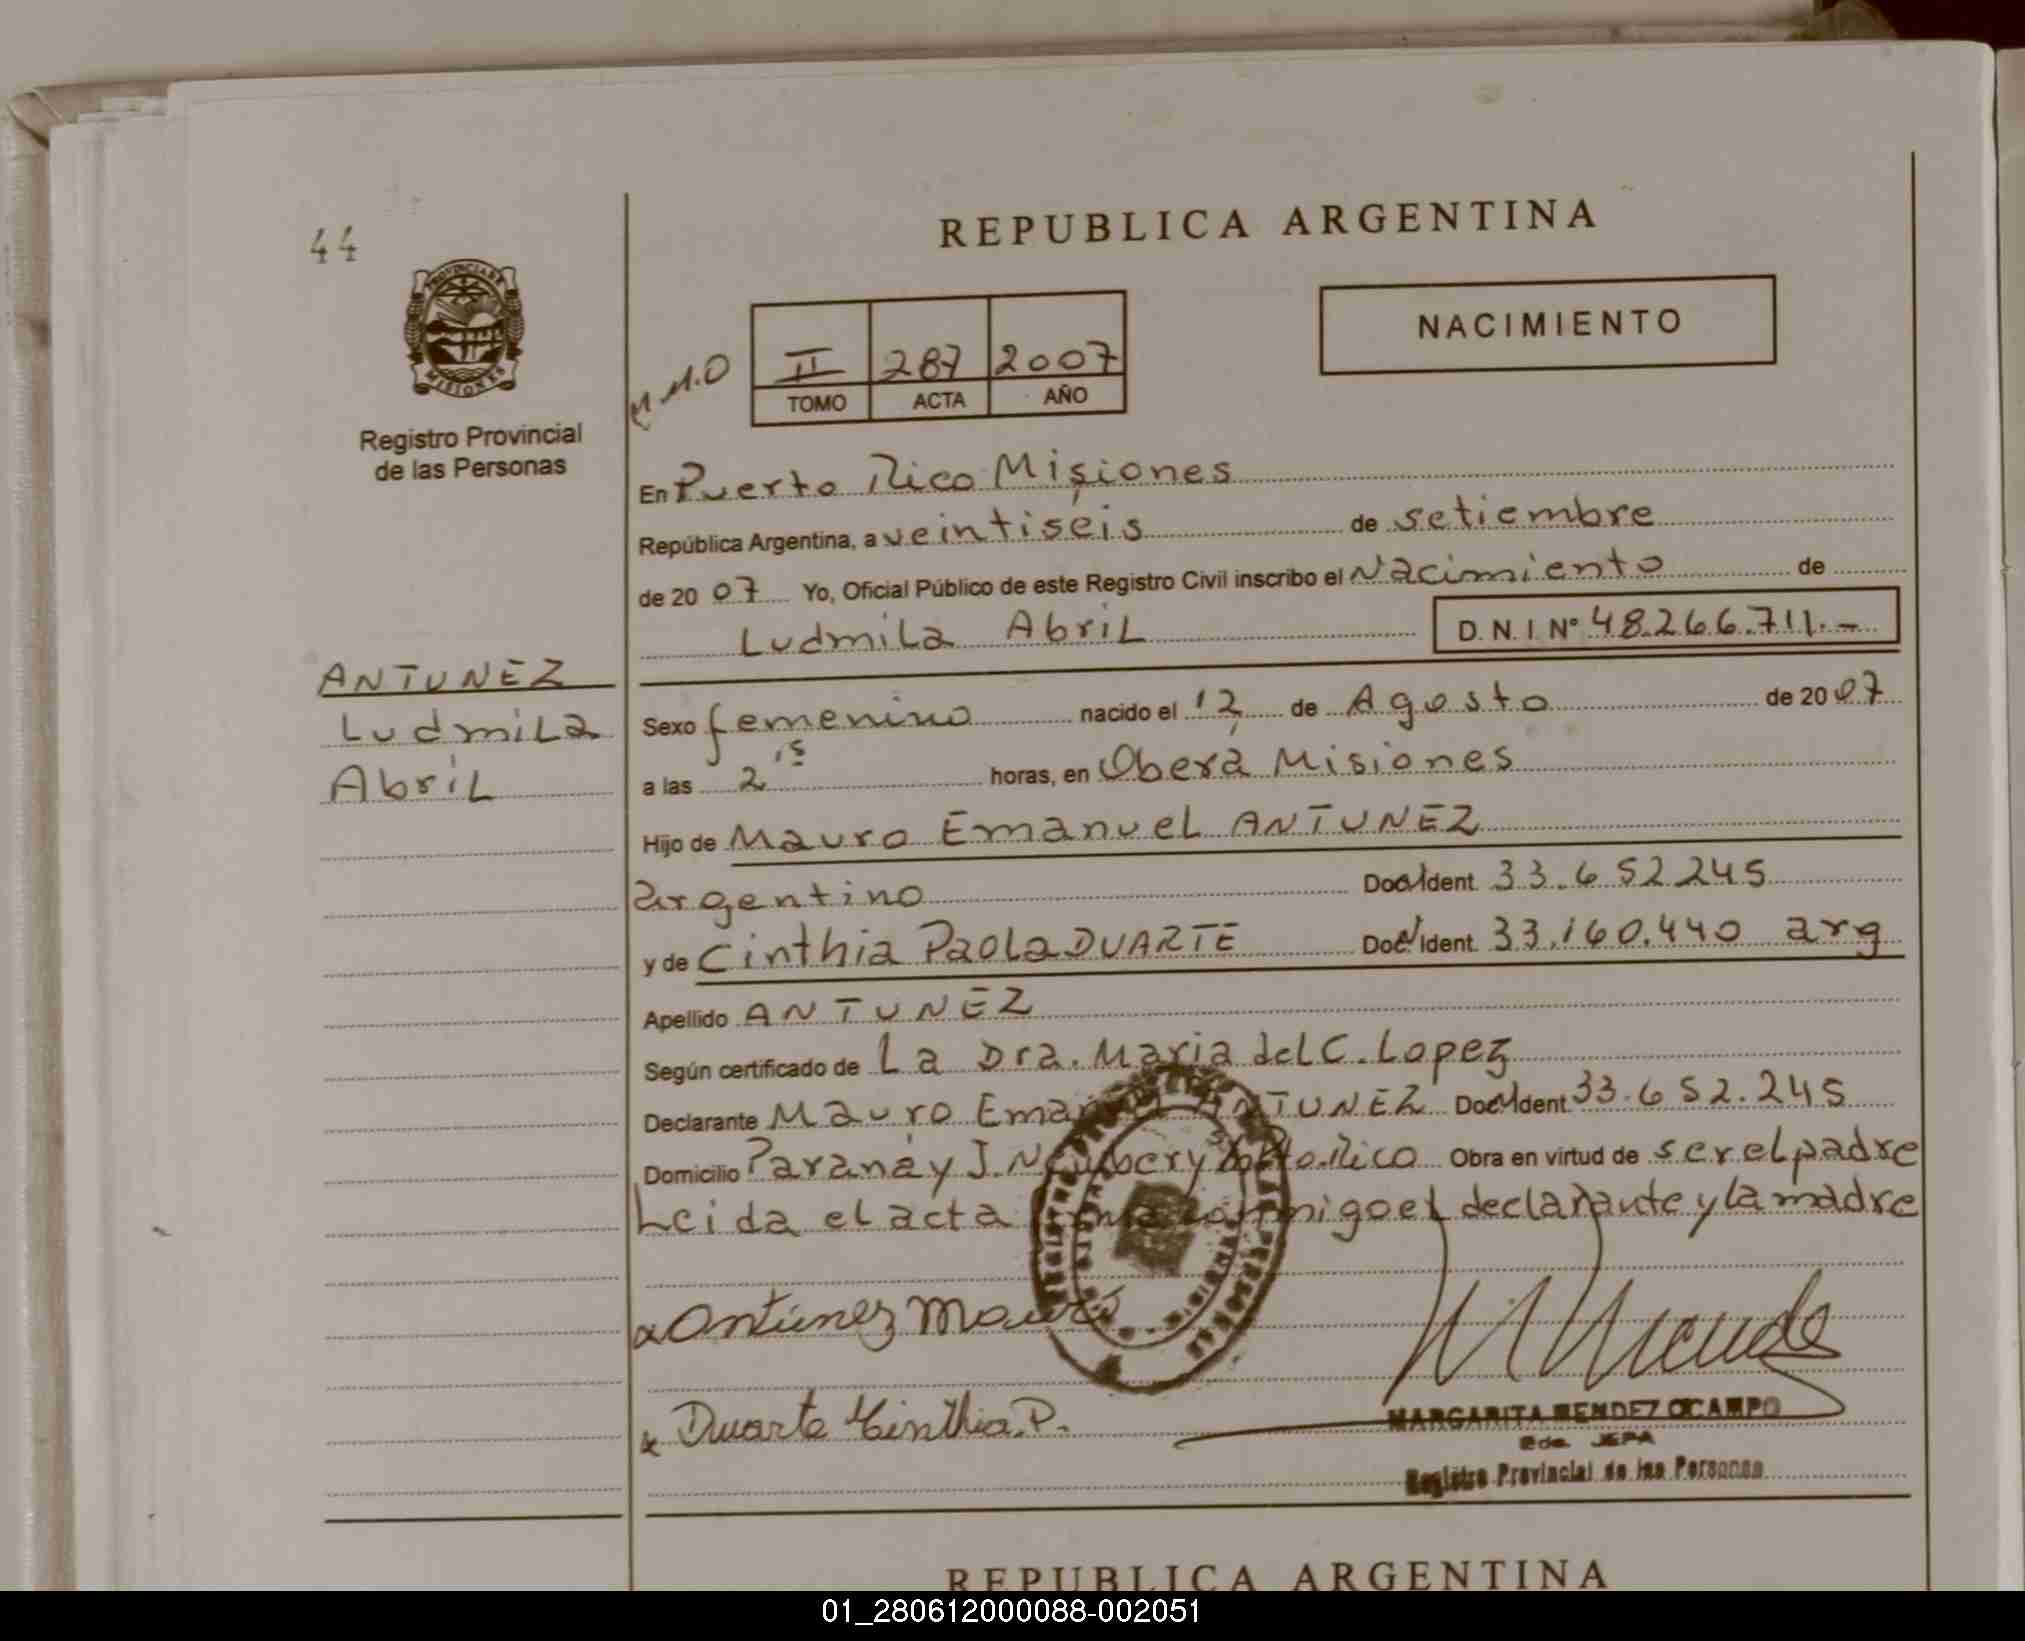 REPUBLICA ARGENTINA
44
PROVINCIA DE
MISIONES
Registro Provincial
de las Personas
NACIMIENTO
II 287 2007
TOMO ACTA AÑO
En Puerto Rico Misiones
República Argentina, a veintiséis de setiembre
de 20 07 Yo, Oficial Público de este Registro Civil inscribo el Nacimiento de
Ludmila Abril D.N.I. Nº 48.266.711.-
ANTUNEZ
Ludmila
Abril
Sexo femenino nacido el 12 de Agosto de 20 07
a las 2 15 horas, en Oberá Misiones
Hijo de Mauro Emanuel ANTUNEZ
argentino Doc. Ident. 33.652.245
y de Cinthia Paola DUARTE Doc. Ident. 33.160.440 arg
Apellido ANTUNEZ
Según certificado de La Dra. Maria del C. Lopez
Declarante Mauro Emanuel ANTUNEZ Doc. Ident. 33.652.245
Domicilio Paraná y J. Newbery Pto. Rico Obra en virtud de ser el padre
Leida el acta conmigo el declarante y la madre
Antúnez Mauro
Duarte Cinthia P.
MARGARITA MENDEZ OCAMPO
2da. JEFA
Registro Provincial de las Personas
REPUBLICA ARGENTINA
01_280612000088-002051